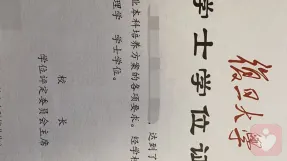 復旦大学
学士学位证
，达到了
业本科培养方案的各项要求。经学
理学 学士学位。
校 长
学位评定委员会主席